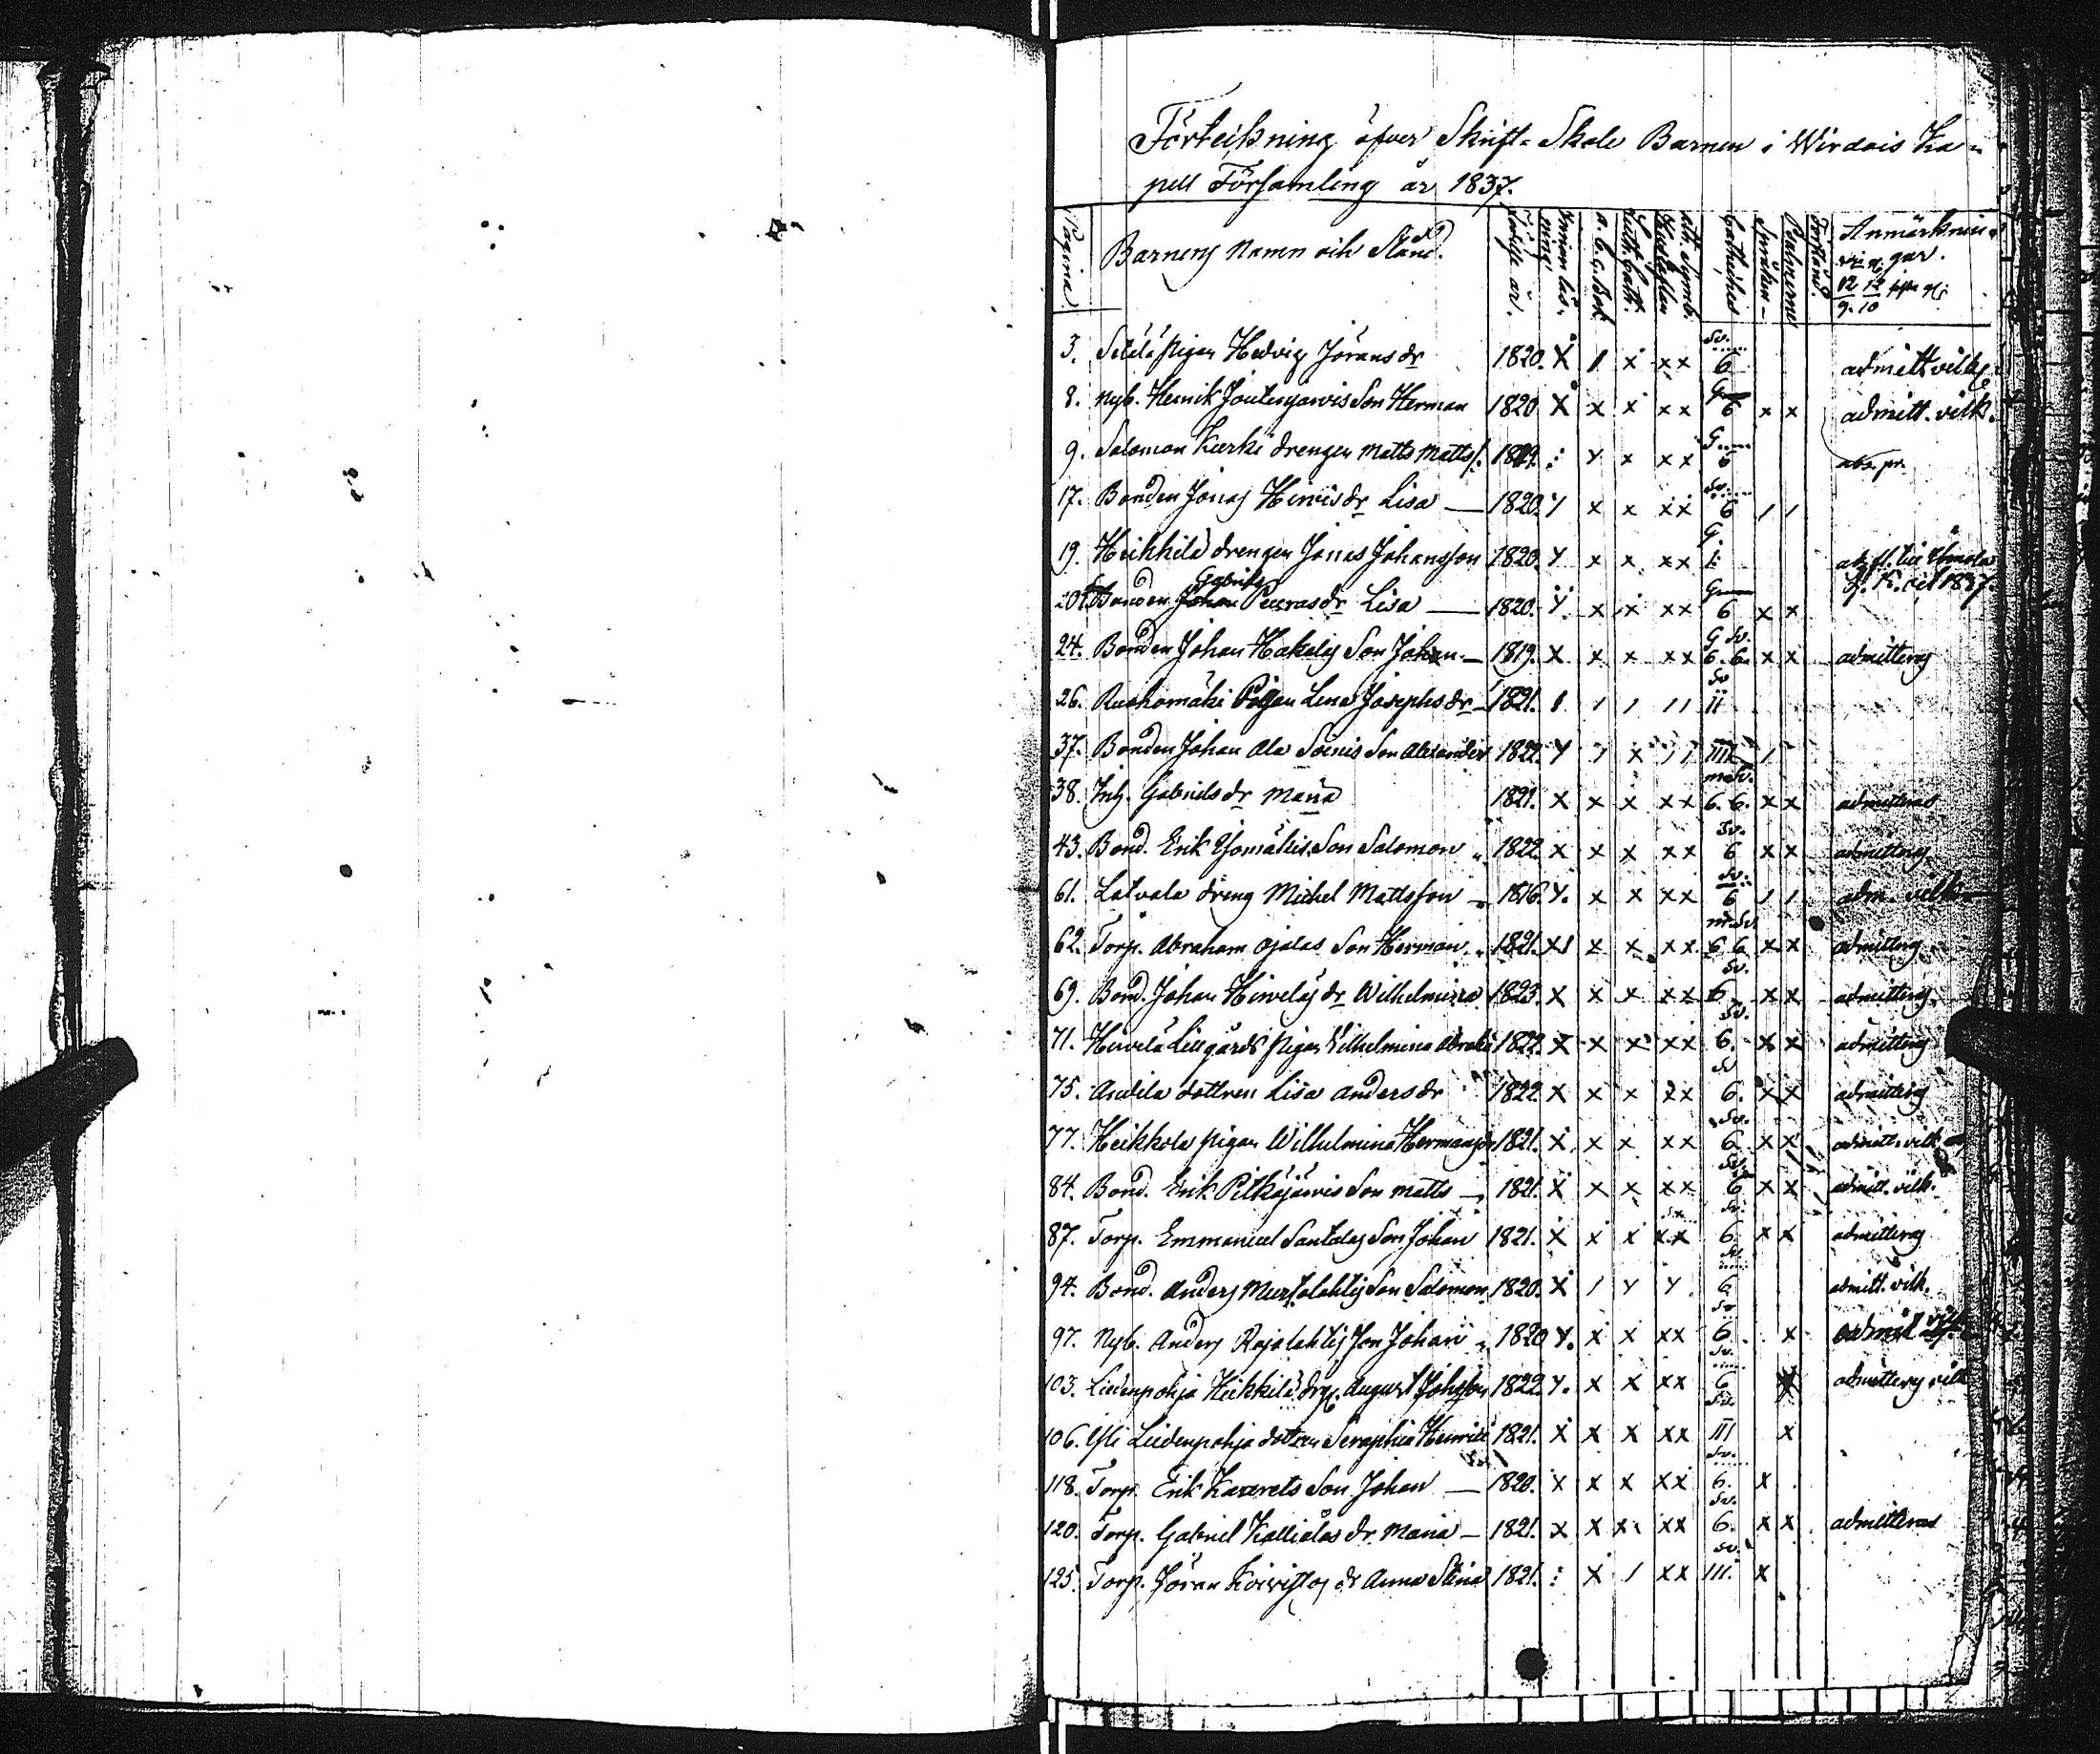 Förteißning öfver Skrift-Skole Barnen i Wirdois Ka-
pell Församling år 1837.
Pagina. Barnens Namn och Stånd. Födelse år. Innan läsning. a.b.c. Bok Luth. Cath. Hustaflan ath. Symb. Cateches Spörsm. Psalmerne Förstånd. Anmärkningar.
3. Seilälä pigan Hedvig Jörans dr 1820. X 1 x xx Sv. 6 admitt vilk.
8. Nyb. Henrik Joutenjärvis Son Herman 1820 X x x xx G 6 x x admitt. vilk.
9. Salomon Kurki drengen Matts Matts. 1819. x xx G 6 abs. pr.
17. Bonden Jonas Hirvis dr Lisa — 1820. Y x x xx Sv. 6 / /
19. Heikkilä drengen Jonas Johansson 1820 Y x x xx G.
20. Bonden Johan Gabriels Peuras dr Lisa — 1820. Y x x xx G 6 x x
24. Bonden Johan Hakolas Son Johan — 1819. X x x xx G Sv. 6. 6. x x admitteras
26. Ruohomäki Pigan Lena Josephs dr 1821. 1 / / // Sv II
37. Bonden Johan Ala Soinis Son Alexander 1822. Y / x // III /
38. Inh. Gabriels dr Maria 1821. X x x xx 6. 6. x x admitteras
43. Bond. Erik Yömäkis Son Salomon „ 1822 X x x xx Sv. 6 x x admitteras
61. Latvala dreng Michel Mattsson — 1816. Y. x x xx Sv. 6 / / adm. vilk.
62. Torp. Abraham Ojalas Son Herman „ 1821. XI x x xx 6 6 x x admitteras
69. Bond. Johan Hirvelas dr Wilhelmina 1823. X x x xx Sv. 6 x x admitteras
71. Hirvelä Lillgårds pigan Wilhelmina 1822. X x x xx Sv. 6. x x admitteras
75. dottren Lisa Anders dr 1822. X x x xx Sv 6. x x admitteras
77. Heikkola pigan Wilhelmina Hermans dr 1821. X x x xx Sv. 6 x x admitt. vilk
84. Bond. Erik Pitkäjärvis Son Matts — 1821. X x x xx Sv. 6 x x admitt. vilk.
87. Torp. Emmanuel Santalas Son Johan 1821. X x x xx Sv. 6 x x admitteras
94. Bond. Anders Son Salomon 1820. X / Y Y Sv 6 admitt. vilk.
97. Nyb. Anders Rajalahtis Son Johan „ 1820 Y. x x xx Sv 6. x admit vilk
103. Liedenpohja Heikkilä drg. August Johsson 1822 Y. x x xx Sv. 6 x admitteras vilk
106. Yli Liedenpohja dottren Seraphia Heinrics dr 1821. X x x xx Sv. III x
118. Torp. Erik Son Johan — 1820. X x x xx Sv. 6. x
120. Torp. Gabriel Kallialas dr Maria — 1821. X x x xx Sv. 6. x x admitteras
125. Torp. Jöran Koivistos dr Anna Stina 1821. x / xx Sv. III. x